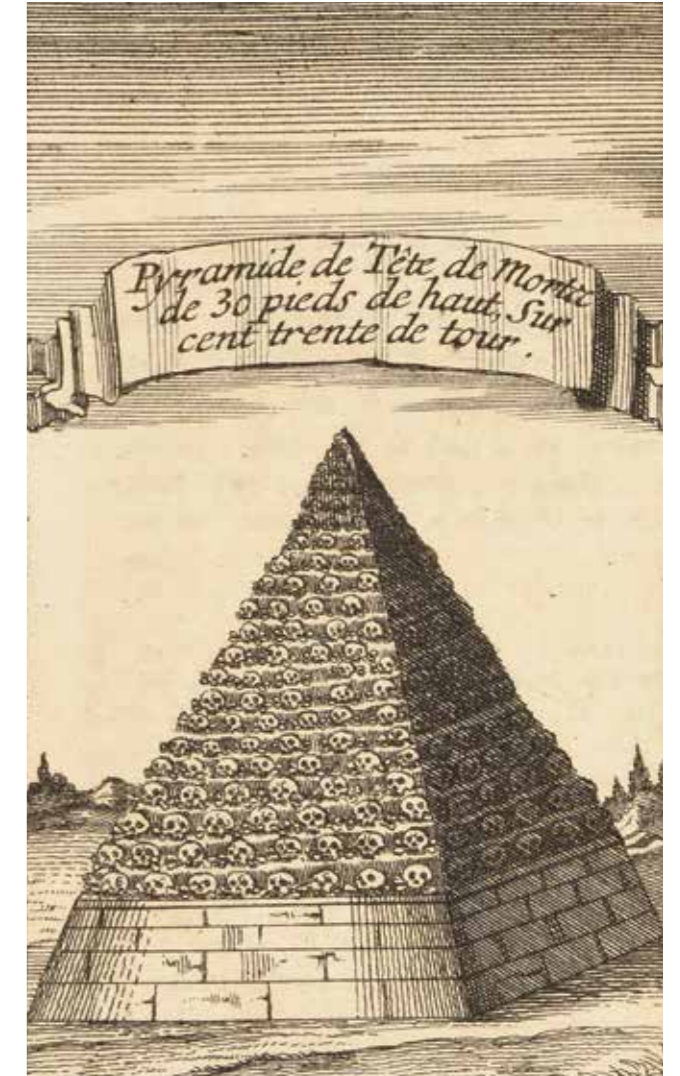 Pyramide de Tête de Morts
de 30 pieds de haut, Sur
cent trente de tour.